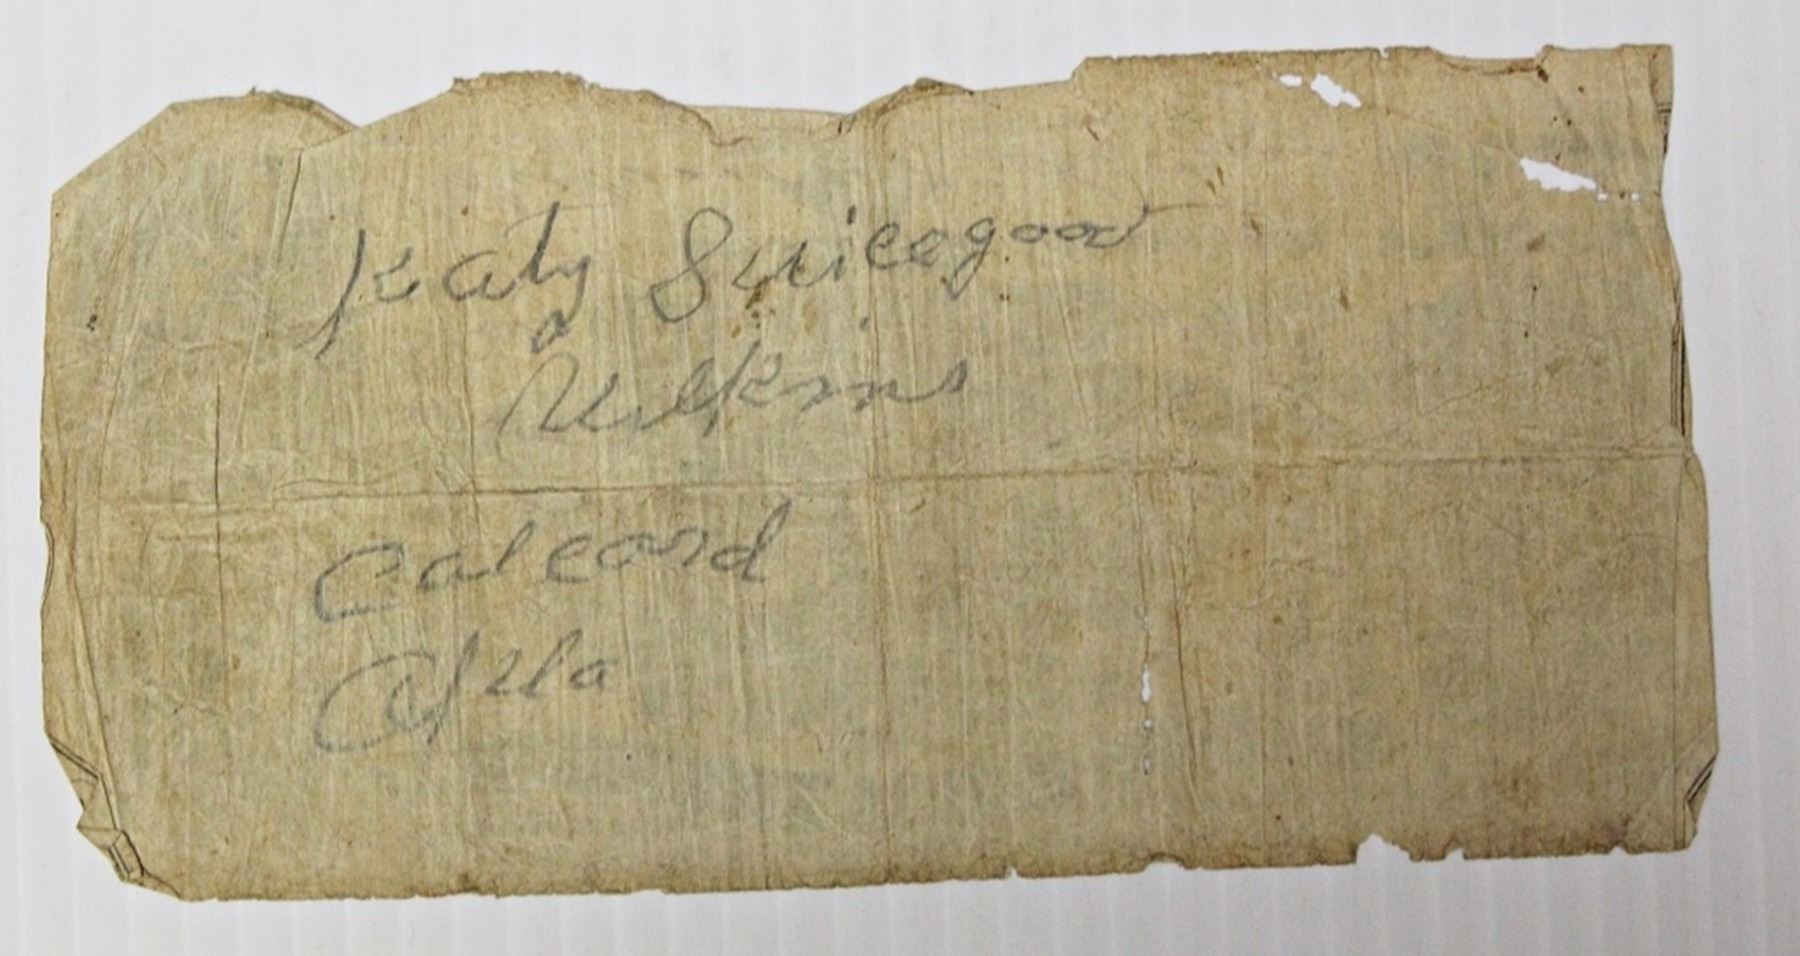 Katy Swicegood
a
Wilkins
Calcord
Okla